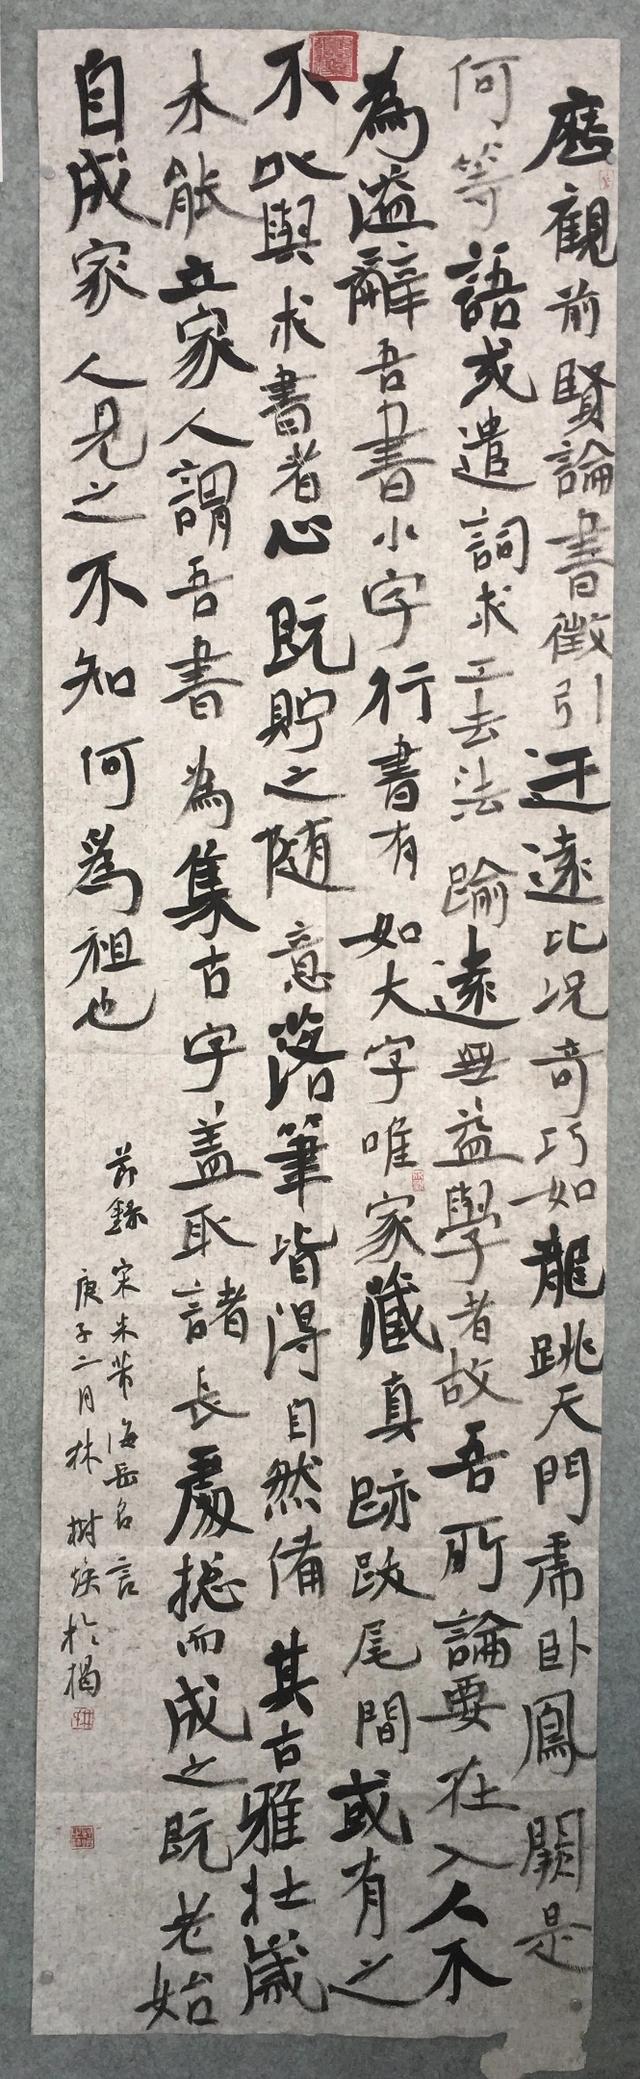 歷觀前賢論書徵引迂遠比況奇巧如龍跳天門虎卧鳳闕是
何等語或遣詞求工去法踰遠無益學者故吾所論要在入人不
為溢辭吾書小字行書有如大字唯家藏真跡跋尾間或有之
不以與求書者心既貯之随意落筆皆得自然備其古雅壮歲
未能立家人謂吾書為集古字盖取諸長處捴而成之既老始
自成家人見之不知何為祖也
節錄宋米芾海岳名言
庚子二月林樹㷆於揭